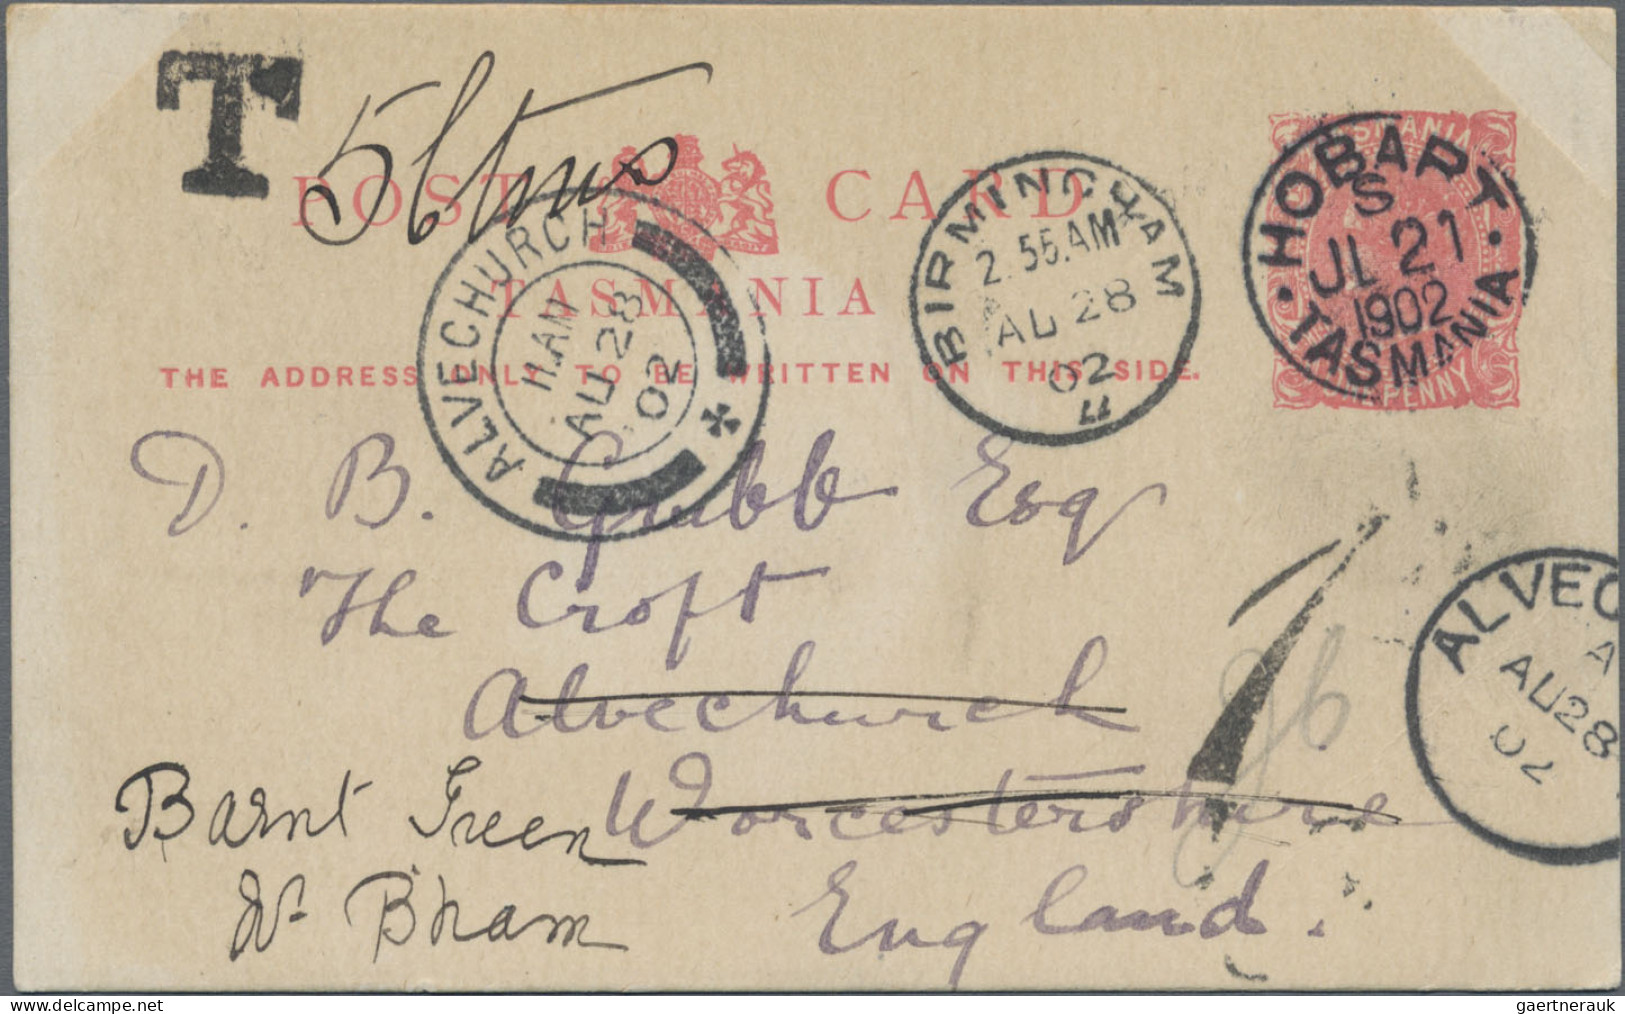 T
5 ctms
POST CARD
TASMANIA
THE ADDRESS ONLY TO BE WRITTEN ON THIS SIDE.
ALVECHURCH
AU 28
02
BIRMINGHAM
2.55.AM
AU 28
02
TASMANIA
PENNY
HOBART
S
JL 21
1902
TASMANIA
D. B. Grubb Esq
The Croft
Alvechurch
Worcestershire
England.
Barnt Green
Nr B'ham
ALVEC
A
AU 28
02
gaertnerauk
www.delcampe.net